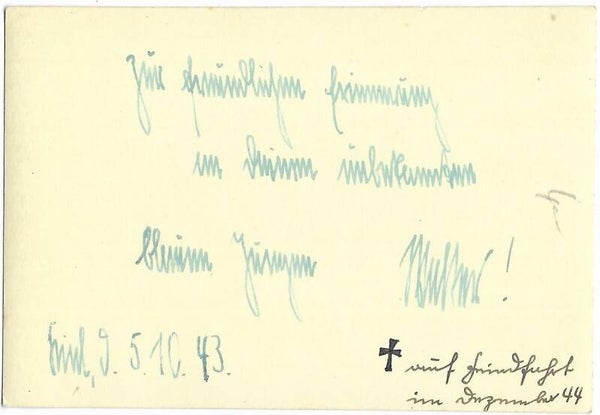 Zur freundlichen Erinnerung
an Deinen unbekannten
blauen Jungen Walter!
Kiel, d. 5.10.43.
✝ auf Feindfahrt
im Dezember 44